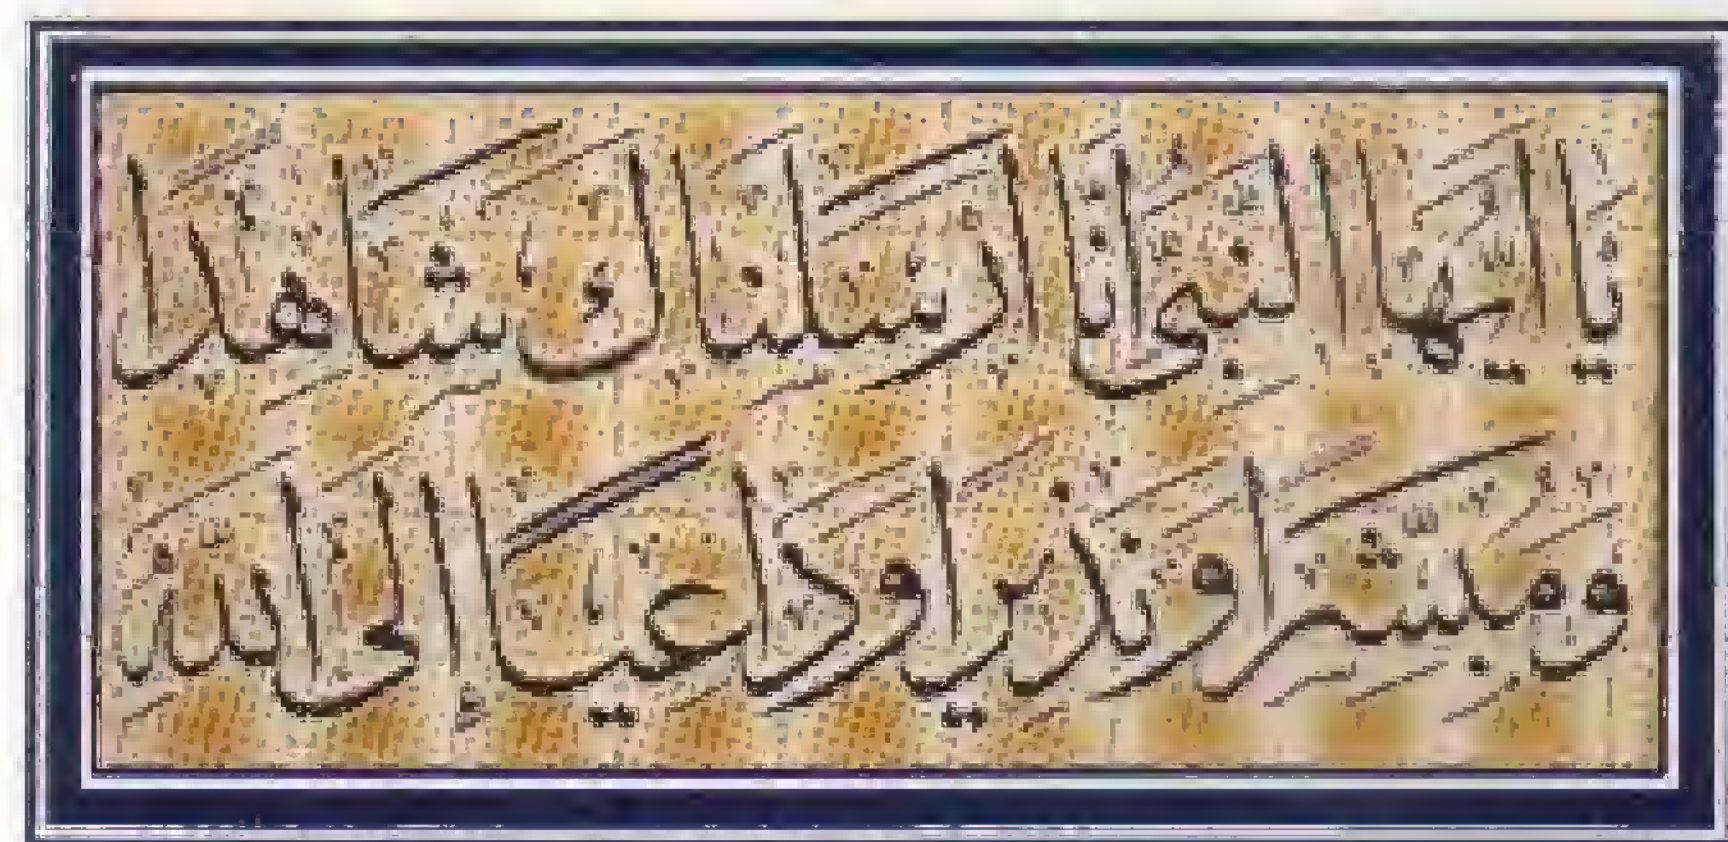 يا ايها النبى انا ارسلناك شاهدا
ومبشرا ونذيرا وداعيا الى الله